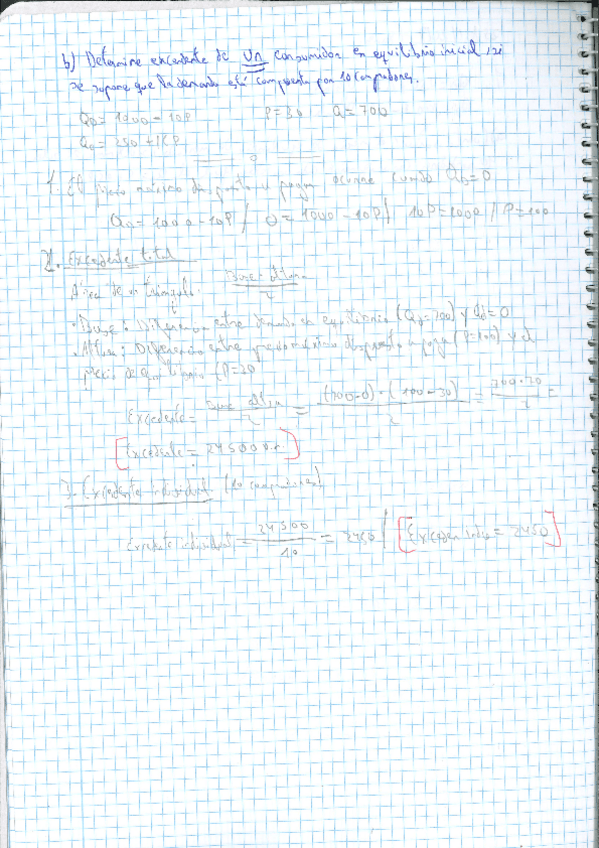 b) Determine excedente de un consumidor en equilibrio inicial, si
se supone que la demanda está compuesta por 10 compradores.
Qd = 1000 - 10P P = 30 Q = 700
1. El precio máximo dispuesto a pagar ocurre cuando Qd = 0
Qd = 1000 - 10P / 0 = 1000 - 10P / 10P = 1000 / P = 100
2. Excedente total
Área de un triángulo: Base · altura / 2
· Base: Diferencia entre demanda en equilibrio (Qd = 700) y Qd = 0
· Altura: Diferencia entre precio máximo dispuesto a pagar (P = 100) y el
precio de equilibrio (P = 30
Excedente = Base · altura / 2 = (700 - 0) · (100 - 30) / 2 = 700 · 70 / 2 =
[Excedente = 24500]
3. Excedente individual (10 compradores)
Excedente individual = 24500 / 10 = 2450 / [Exceden indiv = 2450]